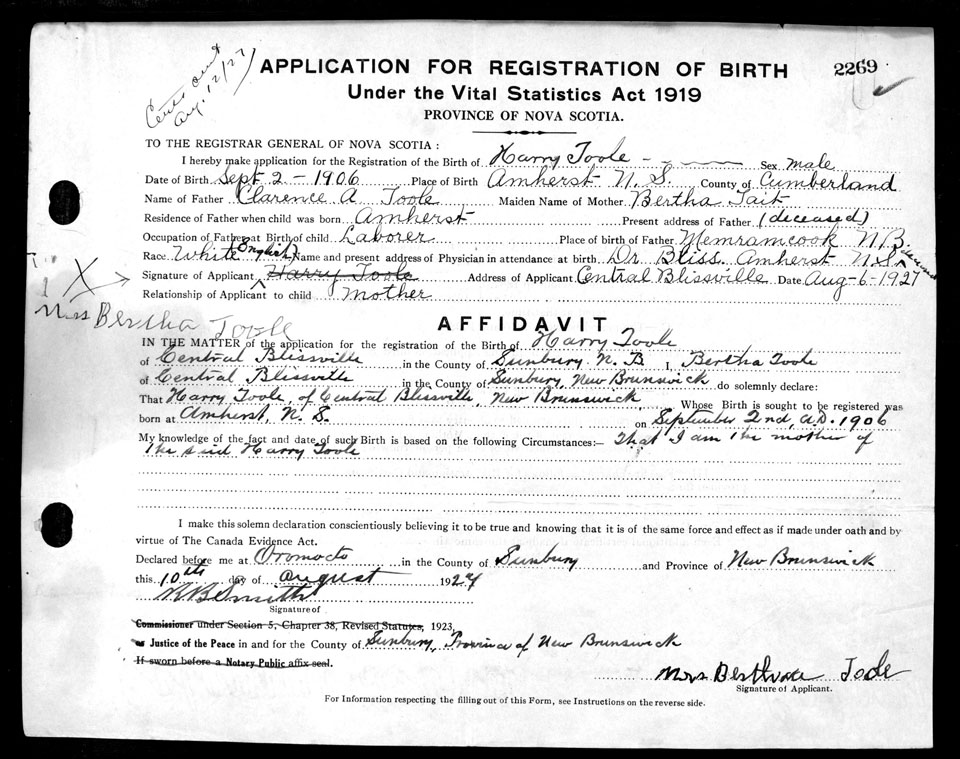 Cert. out
Aug. 12/27
2269
APPLICATION FOR REGISTRATION OF BIRTH
Under the Vital Statistics Act 1919
PROVINCE OF NOVA SCOTIA.
TO THE REGISTRAR GENERAL OF NOVA SCOTIA :
I hereby make application for the Registration of the Birth of Harry Toole Sex male
Date of Birth Sept 2 - 1906 Place of Birth Amherst N. S. County of Cumberland
Name of Father Clarence A Toole Maiden Name of Mother Bertha Tait
Residence of Father when child was born Amherst Present address of Father (deceased)
Occupation of Father at Birth of child Laborer Place of birth of Father Memramcook N.B.
Race White English Name and present address of Physician in attendance at birth Dr. Bliss Amherst N.S. deceased
Signature of Applicant Harry Toole Address of Applicant Central Blissville Date Aug-6-1927
Relationship of Applicant to child mother
X
Mrs Bertha Toole
AFFIDAVIT
IN THE MATTER of the application for the registration of the Birth of Harry Toole
of Central Blissville in the County of Sunbury N. B I, Bertha Toole
of Central Blissville in the County of Sunbury, New Brunswick do solemnly declare:
That Harry Toole, of Central Blissville, New Brunswick Whose Birth is sought to be registered was
born at Amherst, N. S. on September 2nd, A.D. 1906
My knowledge of the fact and date of such Birth is based on the following Circumstances:— That I am the mother of
the said Harry Toole
I make this solemn declaration conscientiously believing it to be true and knowing that it is of the same force and effect as if made under oath and by
virtue of The Canada Evidence Act.
Declared before me at Oromocto in the County of Sunbury and Province of New Brunswick
this 10th day of august 1927
Smith
Signature of
Commissioner under Section 5, Chapter 38, Revised Statutes, 1923,
or Justice of the Peace in and for the County of Sunbury, Province of New Brunswick
If sworn before a Notary Public affix seal.
Mrs Berthae Toole
Signature of Applicant.
For Information respecting the filling out of this Form, see Instructions on the reverse side.